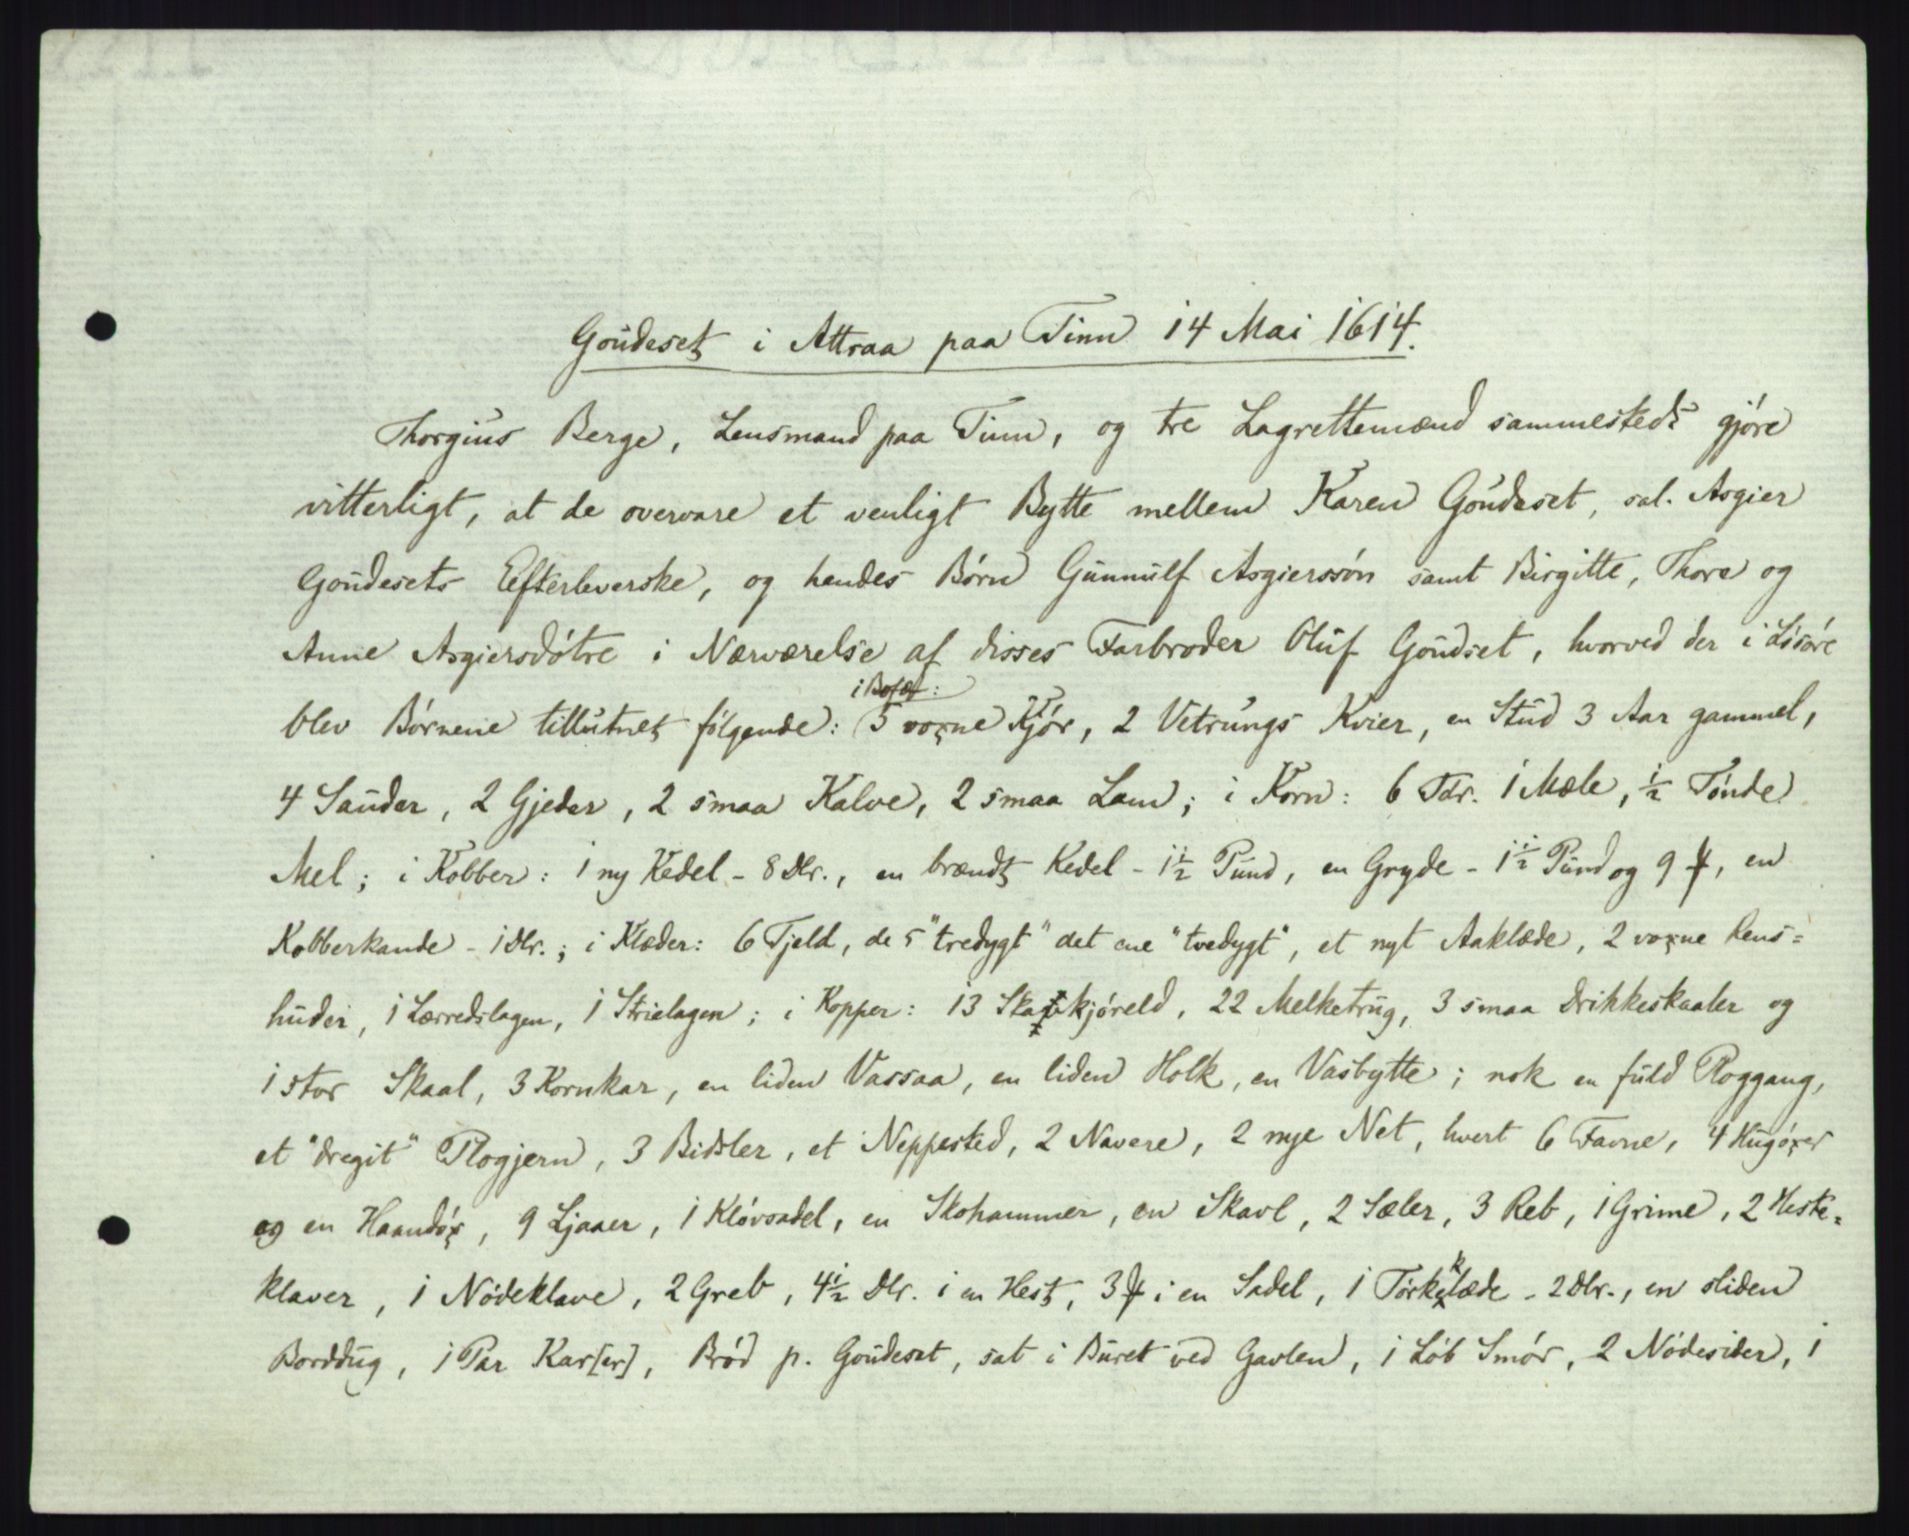 Goudeset i Attraa paa Tinn 14 Mai 1614.
Thorgius Berge, Lensmand paa Tinn, og tre Lagrettemænd sammesteds gjöre
vitterligt, at de overvare et venligt Bytte mellem Karen Goudeset, sal. Asgier
Goudesets Efterleverske, og hendes Börn Gunnulf Asgierssön samt Birgitte, Thore og
Anne Asgiersdötre i Nærværelse af disses Farbroder Oluf Goudset, hvorved der i Lösöre
i Bofæ:
blev Börnene tillutnet fölgende: 5 voxne Kjör, 2 Vetrungs Kvier, en Stud 3 Aar gammel,
4 Sauder, 2 Gjeder, 2 smaa Kalve, 2 smaa Lam; i Korn: 6 Tdr. 1 Mæle, ½ Tönde
Mel; i Kobber: 1 ny Kedel - 8 Dlr., en brændt Kedel - 1½ Pund, en Gryde - 1½ Pund og 9 ℔, en
Kobberkande - 1 Dlr.; i Klæder: 6 Fjeld, de 5 "tredygt" det ene "tvedygt", et nyt Aaklæde, 2 voxne Rens=
huder, 1 Lærredslagen, 1 Strielagen; i Kopper: 13 kjöreld, 22 Melketrug, 3 smaa Drikkeskaaler og
1 stor Skaal, 3 Kornkar, en liden Vassaa, en liden Holk, en Vasbytte; nok en fuld Ploggang,
et "dregit" Plogjern, 3 Bidsler, et Neppested, 2 Navere, 2 nye Net, hvert 6 Favne, 4 Hugöxer
og en Haandöx, 9 Ljaaer, 1 Klövsadel, en Skohammer, en Skavl, 2 Sæler, 3 Reb, 1 Grime, 2 Heste=
klaver, 1 Nödeklave, 2 Greb, 4½ Dlr. i en Hest, 3 ℔ i en Sadel, 1 Törkeklæde - 2 Dlr., en sliden
Borddug, 1 Par Kar[er], Bröd p. Goudeset, sat i Buret ved Gavlen, 1 Löb Smör, 2 Nödesider, 1